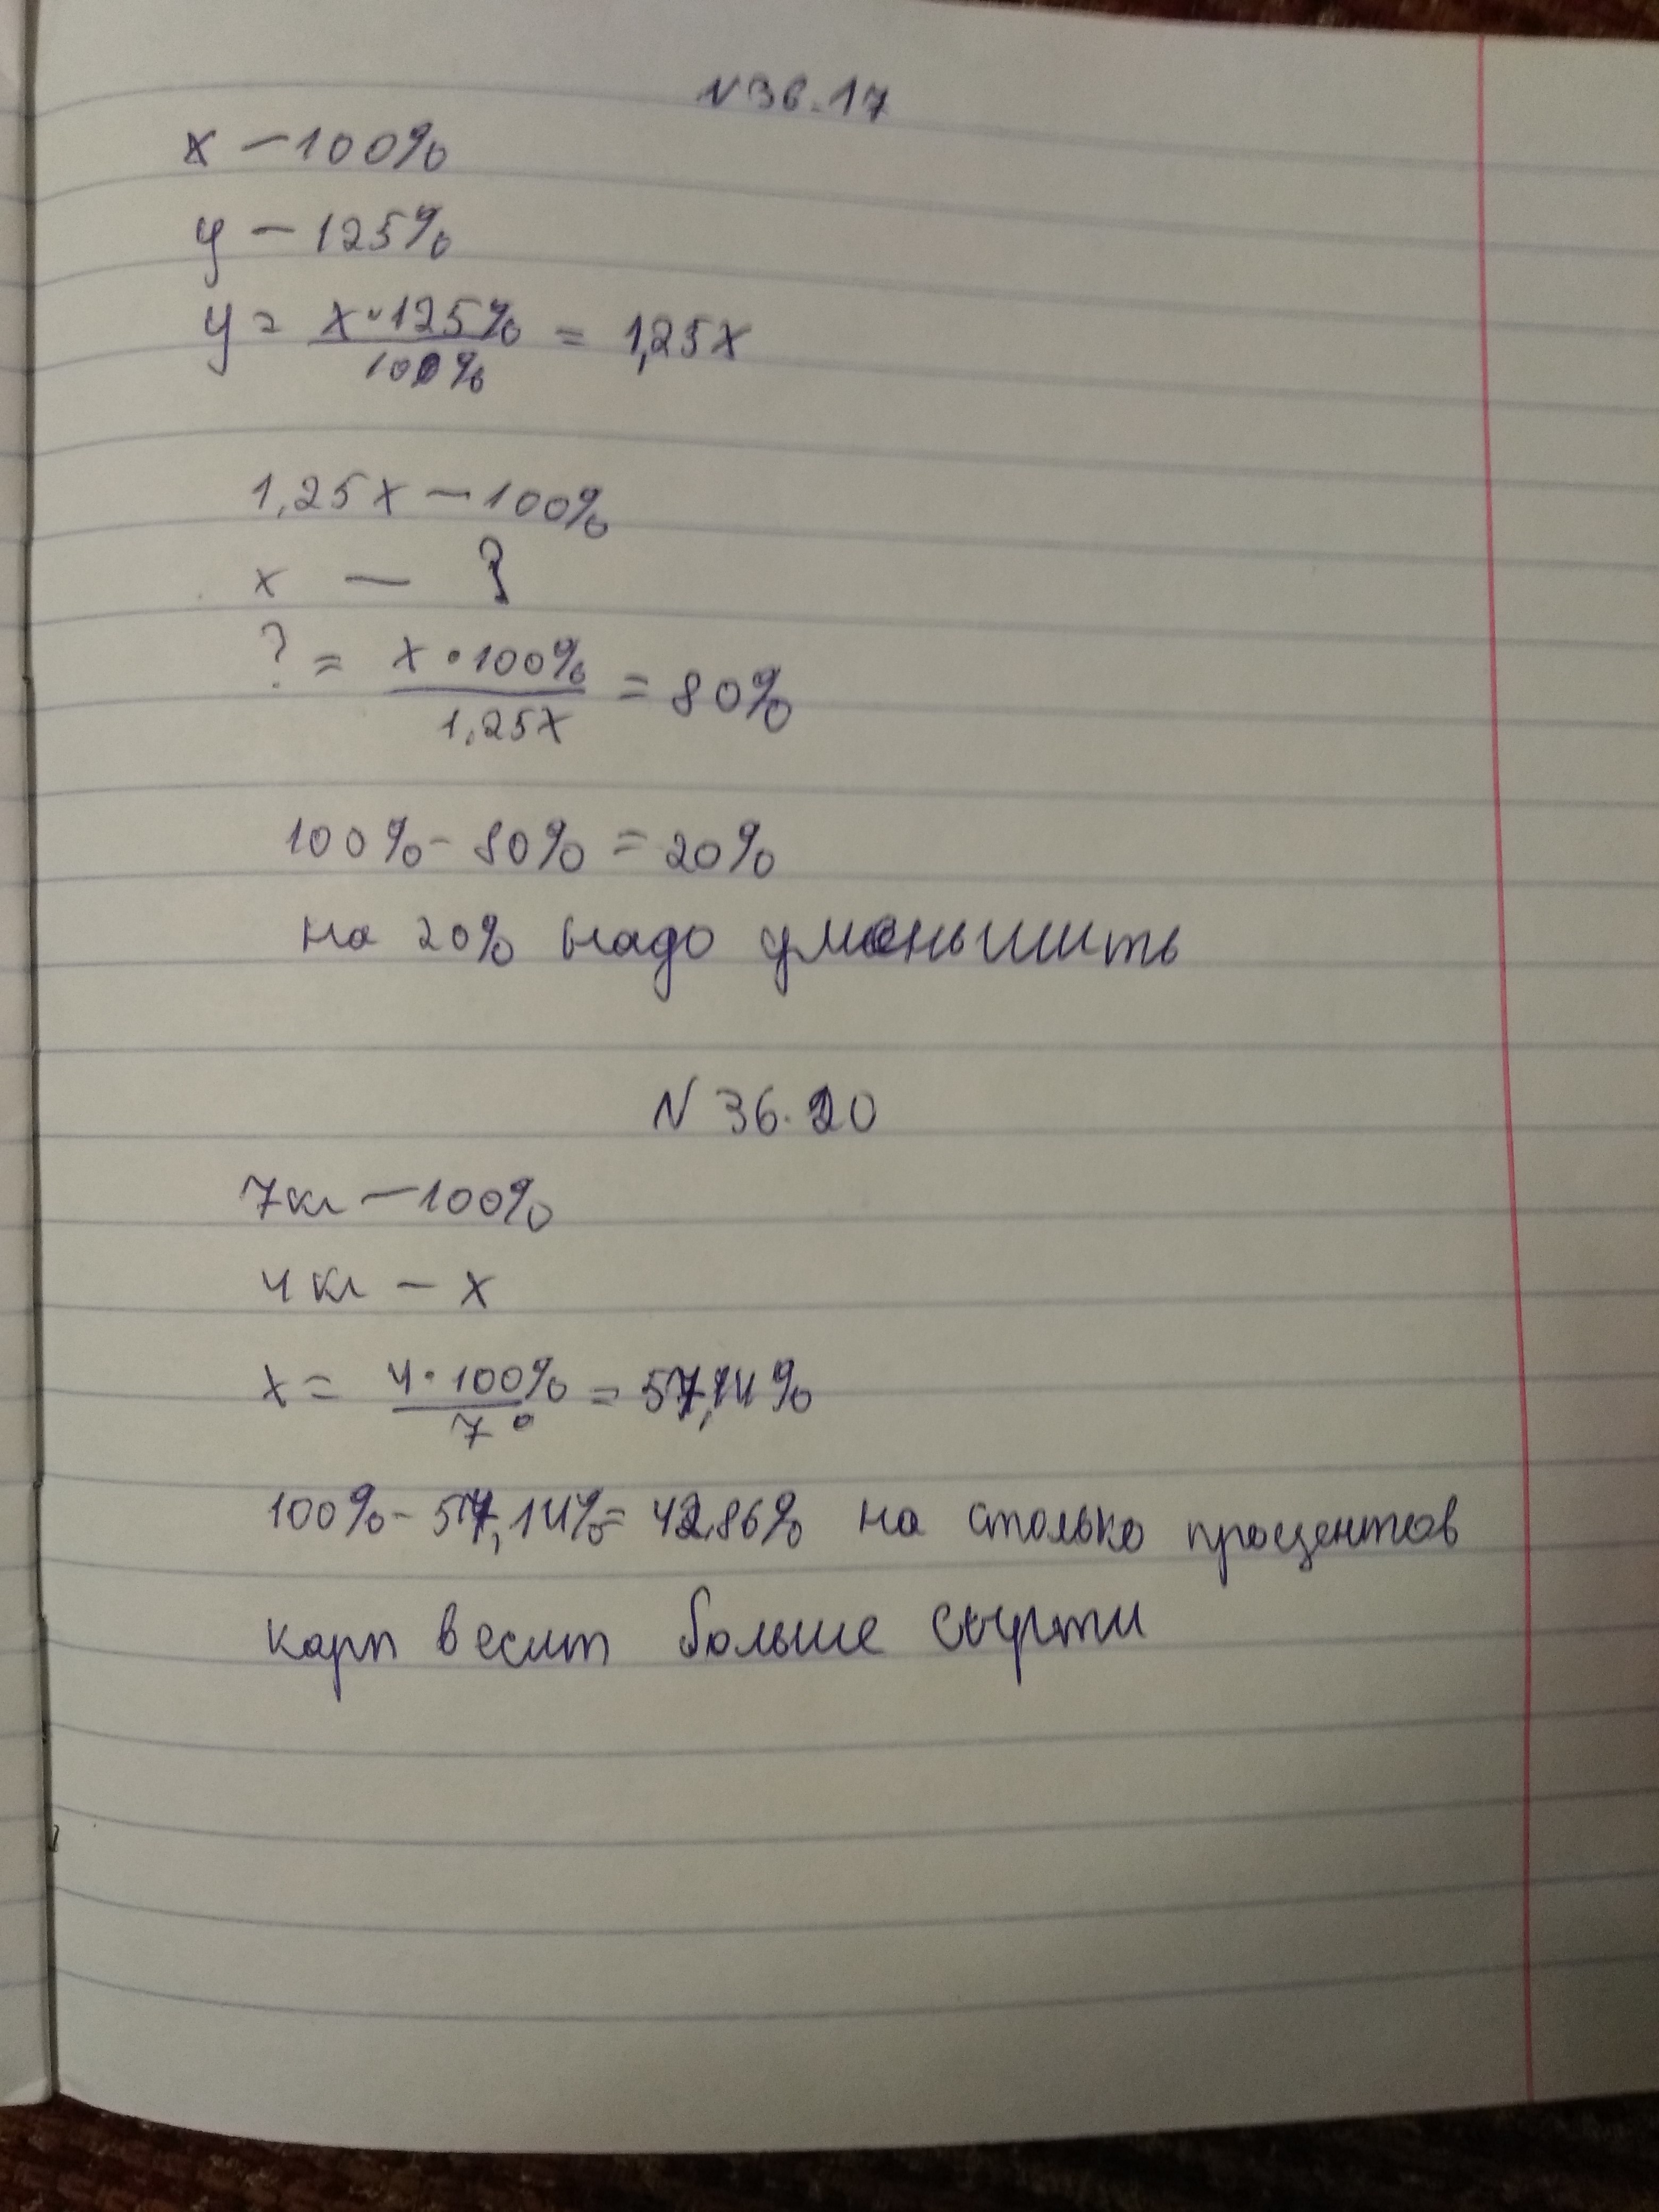 N 36.17
x – 100%
y – 125%
y = x·125% / 100% = 1,25x
1,25x – 100%
x – ?
? = x·100% / 1,25x = 80%
100% - 80% = 20%
на 20% надо уменьшить
N 36.20
7кг – 100%
4кг – x
x = 4·100% / 7 = 57,14%
100% - 57,14% = 42,86% на столько процентов
карп весит больше